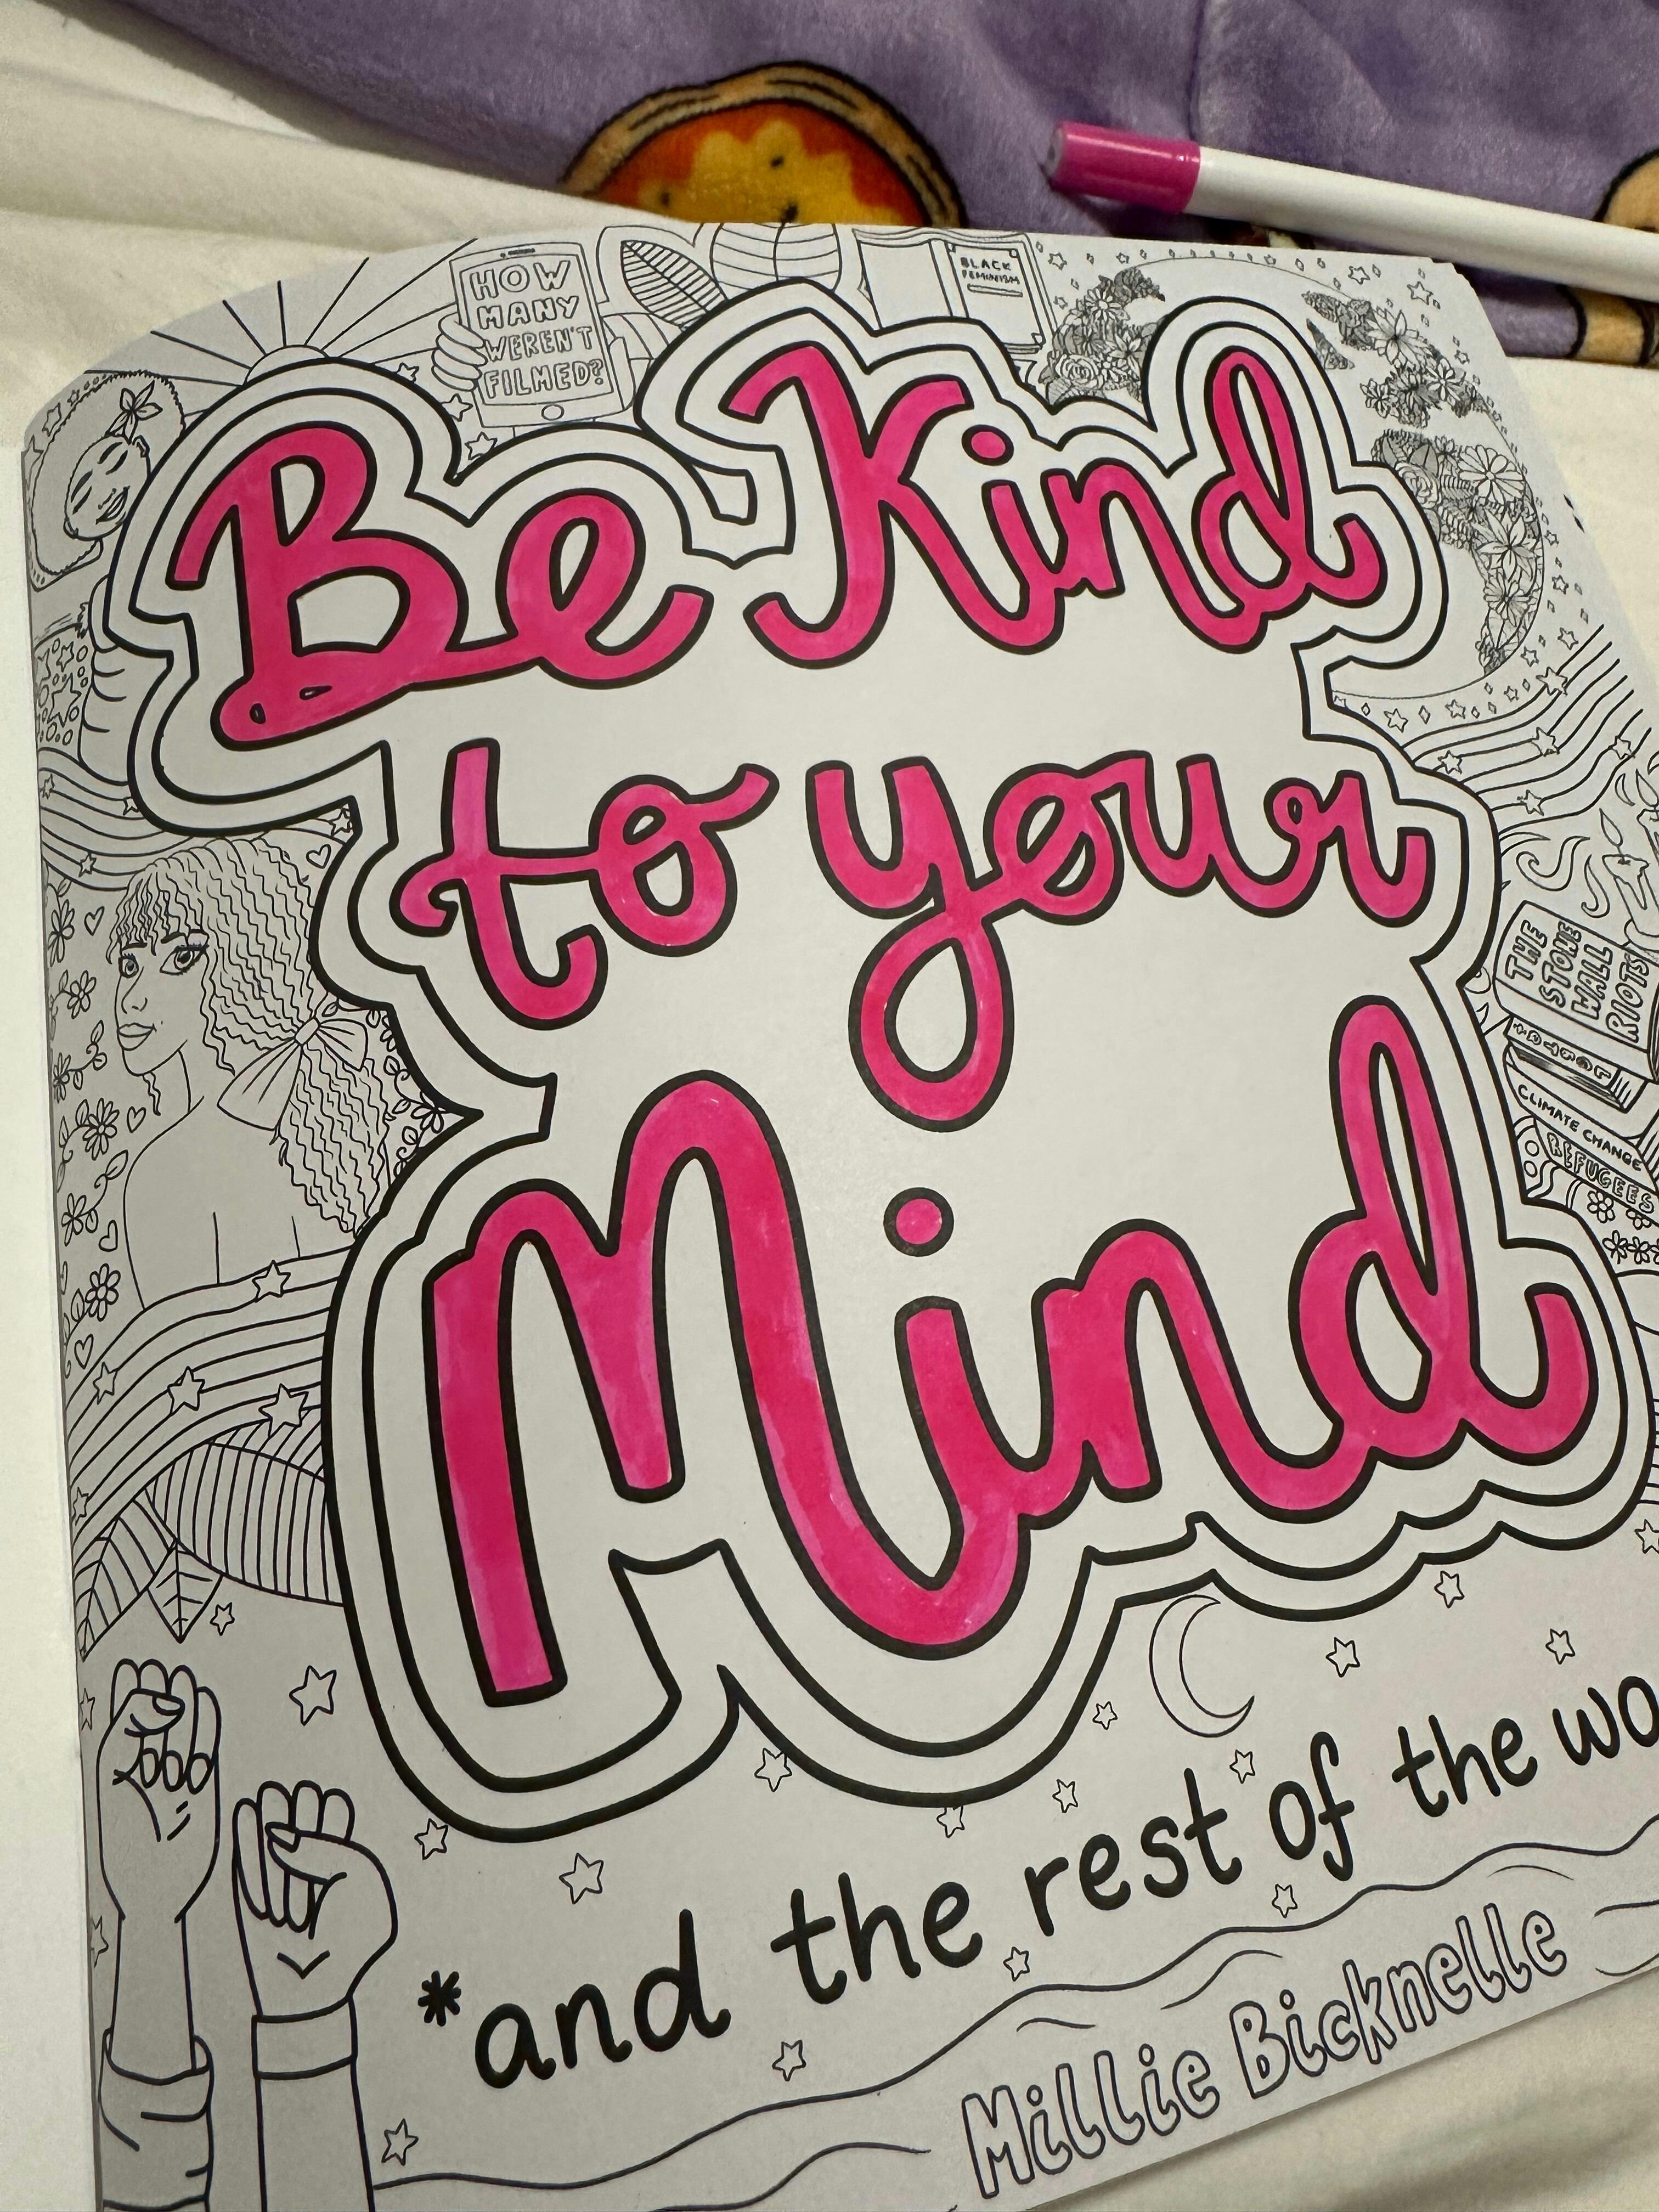 HOW
MANY
WEREN'T
FILMED?
BLACK
FEMINISM
Be Kind
to your
Mind
THE
STONE
WALL
RIOTS
CLIMATE CHANGE
REFUGEES
*and the rest of the
Millie Bicknelle